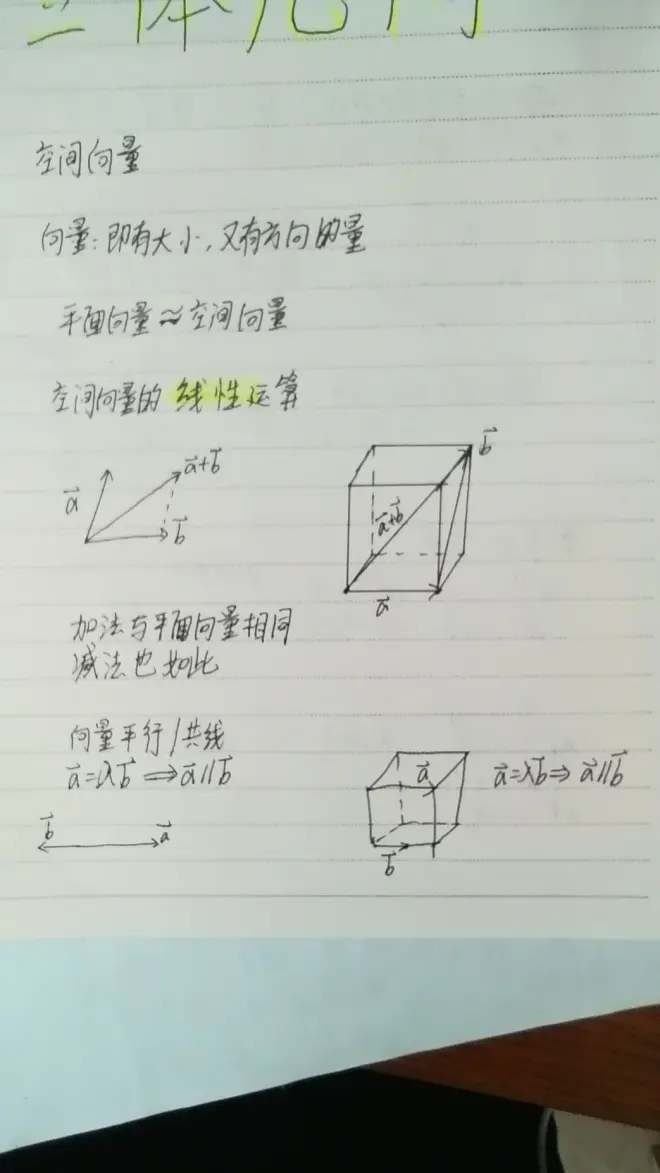 立体几何
空间向量
向量:即有大小,又有方向的量
平面向量≈空间向量
空间向量的 线性运算
a⃗
a⃗+b⃗
b⃗
b⃗
a⃗+b⃗
a⃗
加法与平面向量相同
减法也如此
向量平行/共线
a⃗=λb⃗ ⟹ a⃗//b⃗
b⃗ a⃗
a⃗
b⃗
a⃗=λb⃗ ⇒ a⃗//b⃗